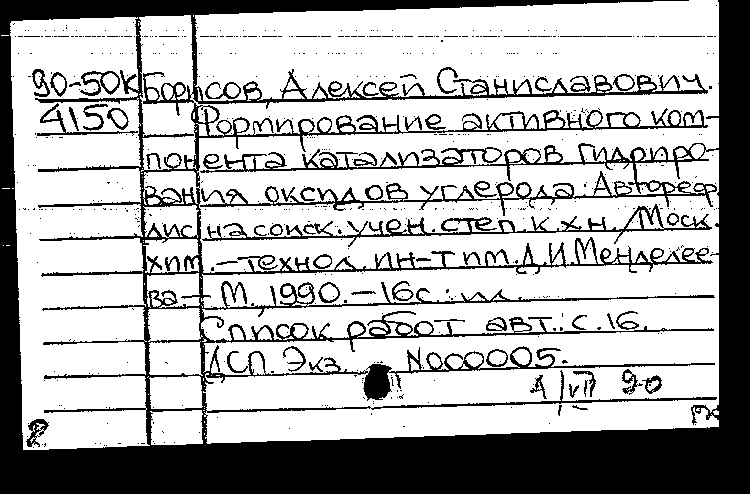 90-50К Борисов, Алексей Станиславович.
4150 Формирование активного ком-
понента катализаторов гидриро-
вания оксидов углерода: Автореф.
дис на соиск. учен. степ. к.х.н. /Моск.
хим.-технол. ин-т им. Д.И. Менделее-
ва.- М., 1990.-16с.: ил.
Список работ авт.: с.16.
ДСП. Экз. N000005.
90
2